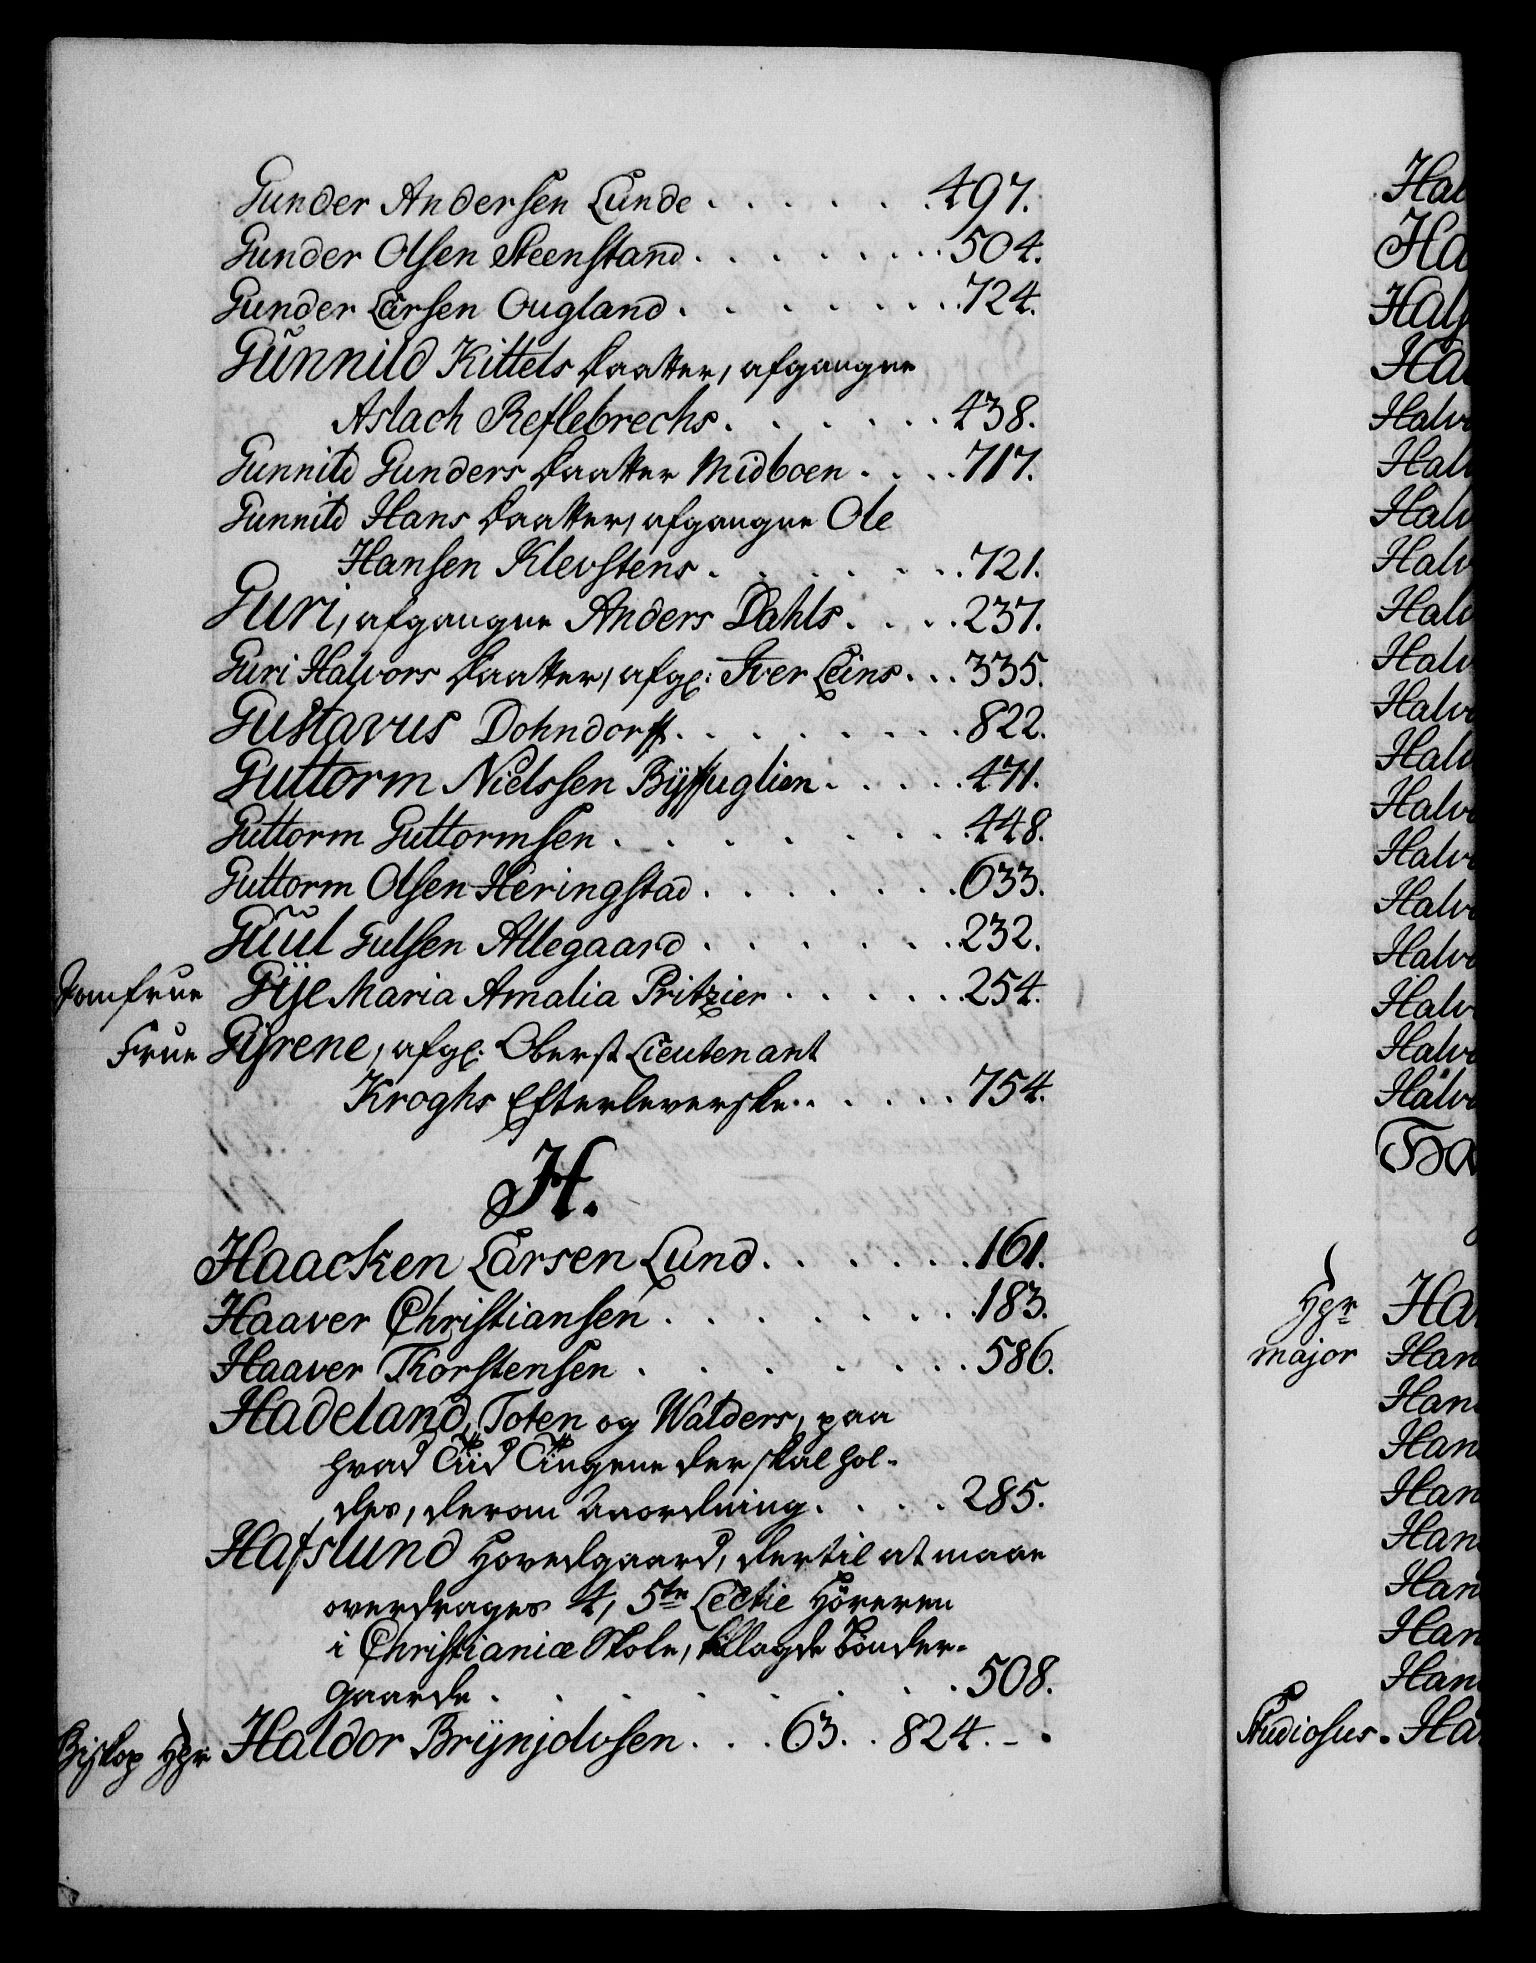 Gunder Andersen Lunde . . . . . . 497.
Gunder Olsen Steenstand . . . . . . . 504.
Gunder Larsen Ougland . . . . . . . 724.
Gunnild Kittels Daatter, afgangne
Aslach Reflebrechs . . . . . . 438.
Gunnild Gunders Daatter Midboen . . . . 717.
Gunnild Hans Daatter, afgangne Ole
Hansen Klevstens . . . . . . . 721.
Guri, afgangne Anders Dahls . . . . 237.
Guri Halvors Daatter, afg: Iver Leins . . . 335.
Gustavus Dohndorff . . . . . . . . 822.
Guttorm Nielssen Byffuglien . . . . . 471.
Guttorm Guttormsen . . . . . . . 448.
Guttorm Olsen Heringstad . . . . . . . 633.
Guul Gulsen Allegaard . . . . . . . 232.
Jomfrue Gije Maria Amalia Pritzier . . . . . . 254.
Frue Gyrene, afg: Oberst Lieutenant
Kroghs Efterleverske . . . . . . 754.
H.
Haacken Larsen Lund . . . . . . 161.
Haaver Christiansen . . . . . . . 183.
Haaver Thorstensen . . . . . . . 586.
Hadeland, Toten og Walders, paa
hvad Tiid Tingene der skal hol-
des, derom Anordning . . . . 285.
Hafslund Hovedgaard, dertil at maae
overdrages 4, 5te Lectie Höreren
i Christianiæ Skole, tillagde Bönder-
gaarde . . . . . . . . 508.
Biskop Hgr Haldor Brynjolvsen . . . 63. . 824. - .
Hal
Ha
Hal
Hal
Halv
Halv
Halv
Halv
Halv
Halv
Halv
Halv
Halv
Halv
Halv
Halv
Halv
Halv
Halv
Ha
Hgr Han
Major Han
Han
Han
Han
Han
Han
Han
Han
Studiosus . Han